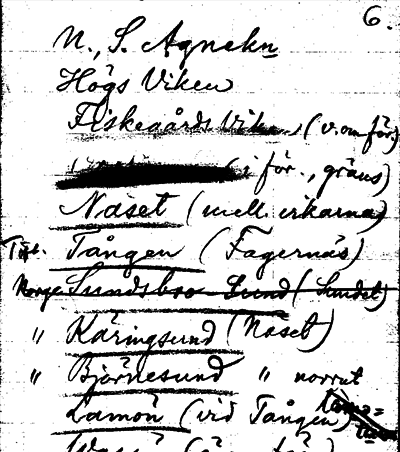 6.
N., S. Agnekn
Högs Viken
Fiskegårds Viken (v. om för.)
(i för., gräns)
Näset (mell. vikarna)
Tången (Fagernäs)
Norge Sundsboo Sund (Sundet)
" Käringsund (Näset)
" Björnesund " norrut
Lamön (vid Tången)